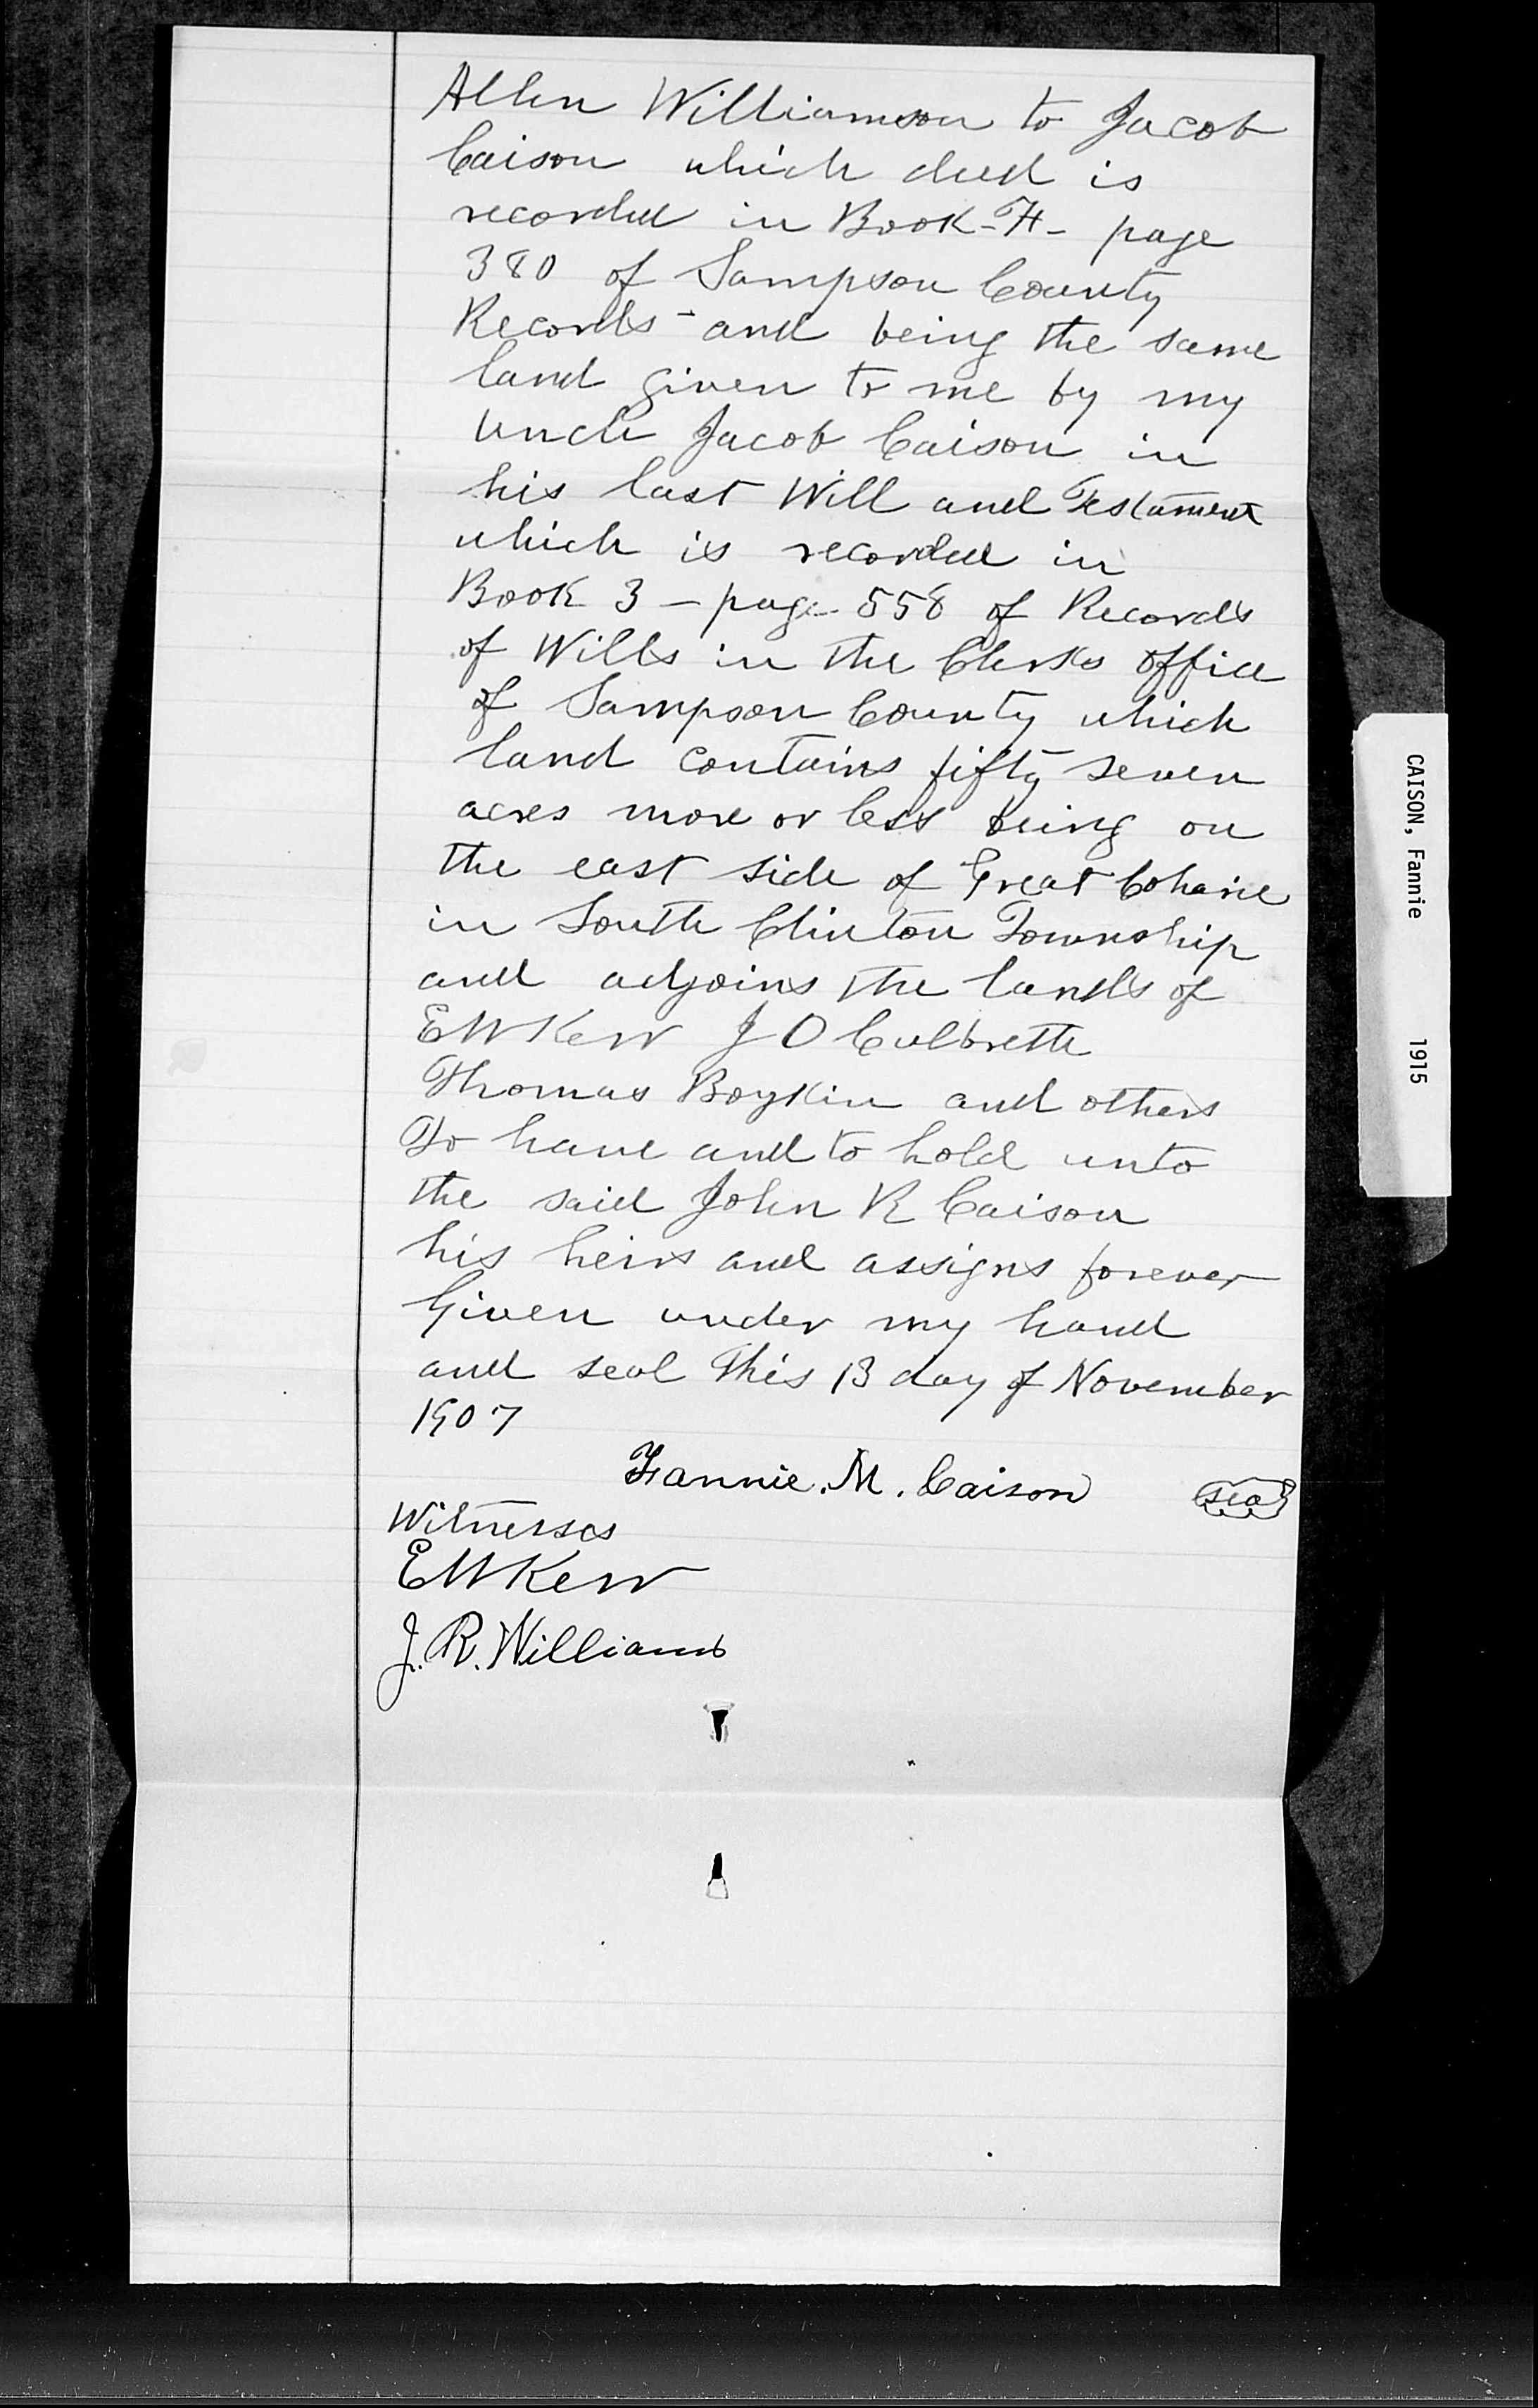 Allen Williamson to Jacob
Caison which deed is
recorded in Book - H - page
380 of Sampson County
Records - and being the same
land given to me by my
uncle Jacob Caison in
his last Will and Testament
which is recorded in
Book 3 - page 558 of Records
of Wills in the Clerks office
of Sampson County which
land contains fifty seven
acres more or less being on
the east side of Great Coharie
in South Clinton Township
and adjoins the lands of
E W Kerr J O Culbreth
Thomas Boykin and others
To have and to hold unto
the said John R Caison
his heirs and assigns forever
Given under my hand
and seal This 13 day of November
1907
Fannie. M. Caison seal
Witnesses
E W Kerr
J. R. Williams
CAISON, Fannie 1915